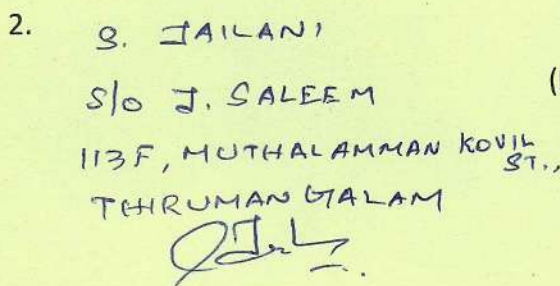 2. S. JAILANI
(
S/o J. SALEEM
113F, MUTHALAMMAN KOVIL ST.,
THIRUMANGALAM